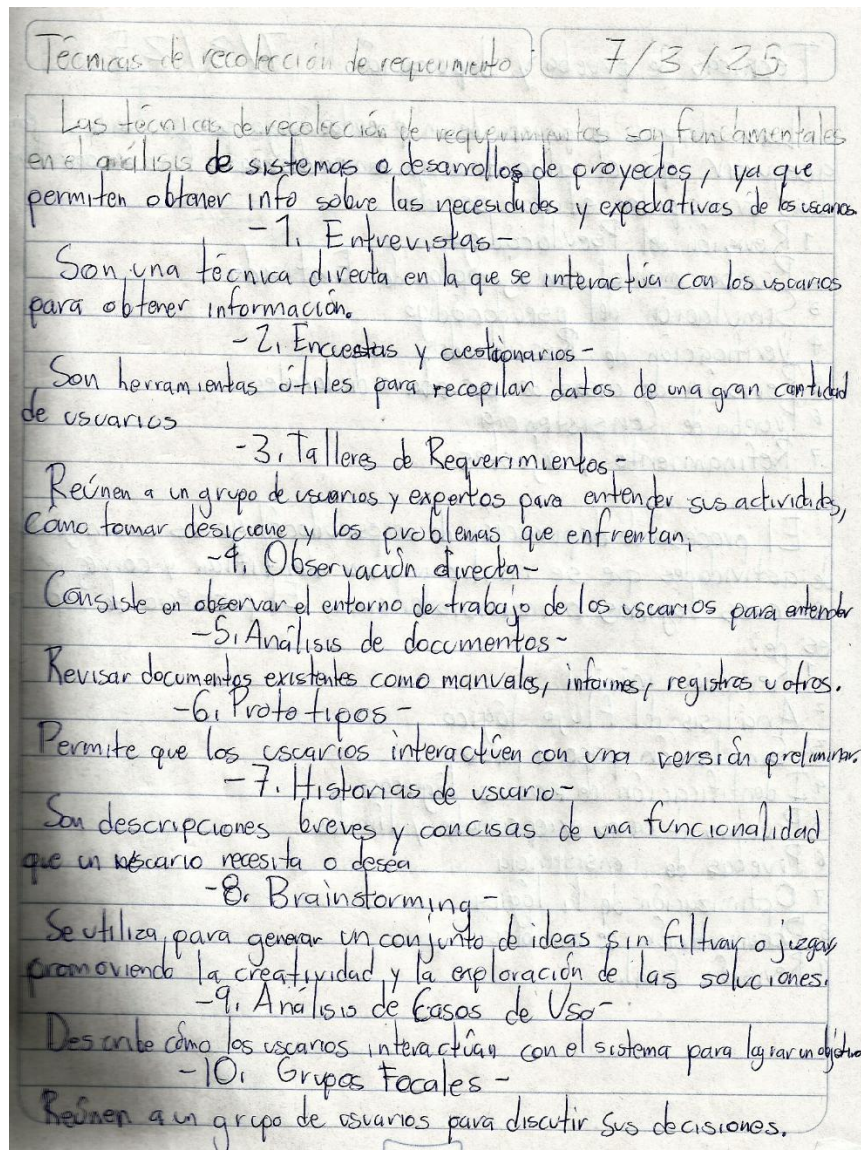 Técnicas de recolección de requerimiento 7/3/25
Las técnicas de recolección de requerimientos son fundamentales
en el análisis de sistemas o desarrollos de proyectos, ya que
permiten obtener info sobre las necesidades y expectativas de los usuarios
-1. Entrevistas-
Son una técnica directa en la que se interactúa con los usuarios
para obtener información.
-2. Encuestas y cuestionarios-
Son herramientas útiles para recopilar datos de una gran cantidad
de usuarios
-3. Talleres de Requerimientos-
Reúnen a un grupo de usuarios y expertos para entender sus actividades,
cómo tomar desicione y los problemas que enfrentan.
-4. Observación directa-
Consiste en observar el entorno de trabajo de los usuarios para entender
-5. Análisis de documentos-
Revisar documentos existentes como manuales, informes, registros u otros.
-6. Prototipos-
Permite que los usuarios interactúen con una versión preliminar.
-7. Historias de usuario-
Son descripciones breves y concisas de una funcionalidad
que un usuario necesita o desea
-8. Brainstorming-
Se utiliza para generar un conjunto de ideas sin filtrar o juzgar
promoviendo la creatividad y la exploración de las soluciones.
-9. Análisis de Casos de Uso-
Describe cómo los usuarios interactúan con el sistema para lograr un objetivo
-10. Grupos Focales-
Reúnen a un grupo de usuarios para discutir sus decisiones.